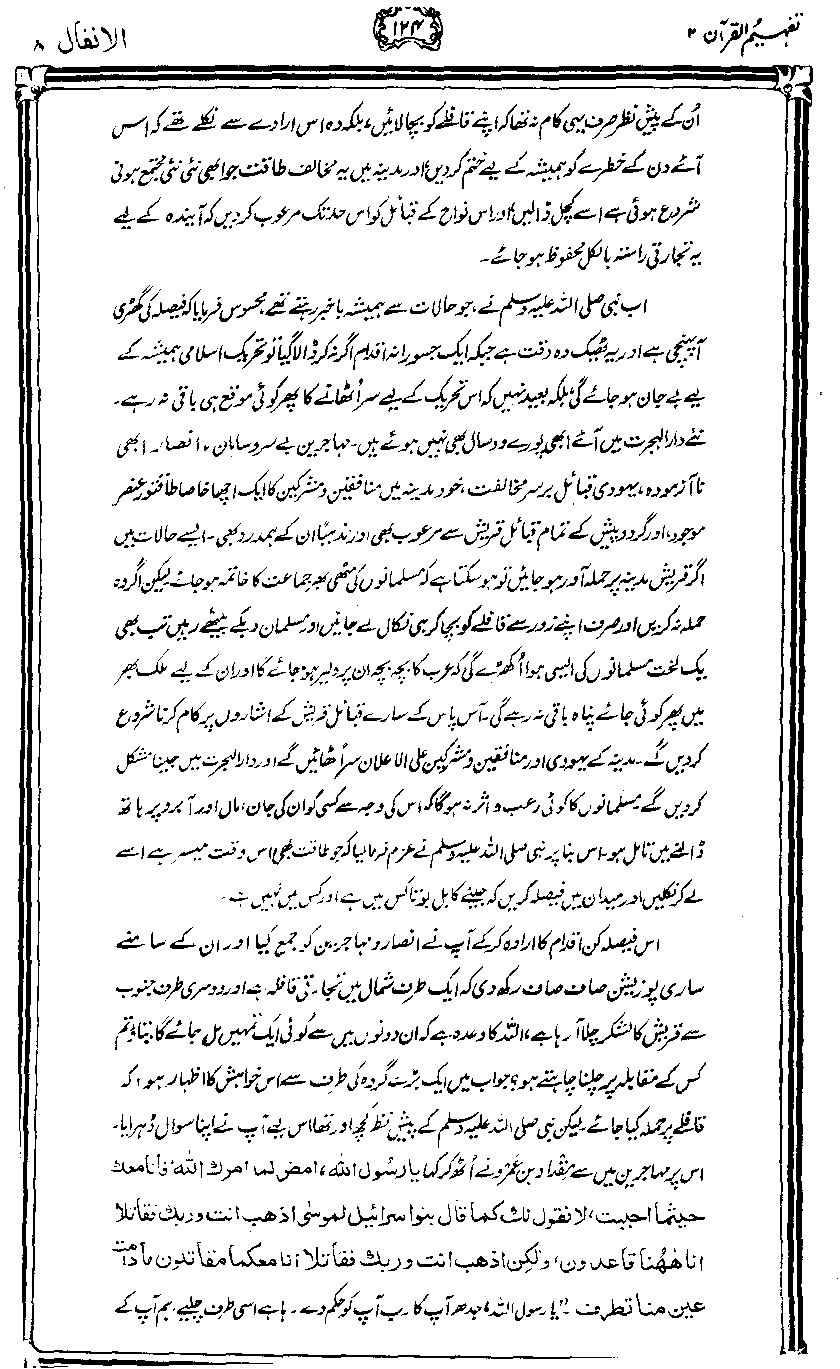 تفہیم القرآن ۲
۱۲۴
الانفال ۸
اُن کے پیش نظر صرف یہی کام نہ تھا کہ اپنے قافلے کو بچا لائیں، بلکہ وہ اس ارادے سے نکلے تھے کہ اس
آئے دن کے خطرے کو ہمیشہ کے لیے ختم کردیں، اور مدینہ میں یہ مخالف طاقت جو ابھی نئی نئی مجتمع ہونی
شروع ہوئی ہے اسے کچل ڈالیں، اور اس نواح کے قبائل کو اس حد تک مرعوب کردیں کہ آیندہ کے لیے
یہ تجارتی راستہ بالکل محفوظ ہوجائے۔
اب نبی صلی اللہ علیہ وسلم نے، جو حالات سے ہمیشہ باخبر رہتے تھے، محسوس فرمایا کہ فیصلہ کی گھڑی
آپہنچی ہے اور یہ ٹھیک وہ وقت ہے جبکہ ایک جسورانہ اقدام اگر نہ کر ڈالا گیا تو تحریک اسلامی ہمیشہ کے
لیے بے جان ہوجائے گی، بلکہ بعید نہیں کہ اس تحریک کے لیے سر اُٹھانے کا پھر کوئی موقع ہی باقی نہ رہے۔
نئے دارالہجرت میں آئے ابھی پورے دو سال بھی نہیں ہوئے ہیں۔ مہاجرین بے سروسامان، انصار ابھی
ناآزمودہ، یہودی قبائل برسرِ مخالفت، خود مدینہ میں منافقین و مشرکین کا ایک اچھا خاصا طاقتور عنصر
موجود، اور گردوپیش کے تمام قبائل قریش سے مرعوب بھی اور مذہباً ان کے ہمدرد بھی۔ ایسے حالات میں
اگر قریش مدینہ پر حملہ آور ہوجائیں تو ہوسکتا ہے کہ مسلمانوں کی مٹھی بھر جماعت کا خاتمہ ہوجائے۔ لیکن اگر وہ
حملہ نہ کریں اور صرف اپنے زور سے قافلے کو بچا کر ہی نکال لے جائیں اور مسلمان دبکے بیٹھے رہیں تب بھی
یک لخت مسلمانوں کی ایسی ہوا اُکھڑے گی کہ عرب کا بچہ بچہ ان پر دلیر ہوجائے گا اور ان کے لیے ملک بھر
میں پھر کوئی جائے پناہ باقی نہ رہے گی۔ آس پاس کے سارے قبائل قریش کے اشاروں پر کام کرنا شروع
کردیں گے۔ مدینہ کے یہودی اور منافقین و مشرکین علی الاعلان سر اُٹھائیں گے اور دارالہجرت میں جینا مشکل
کردیں گے۔ مسلمانوں کا کوئی رعب و اثر نہ ہوگا کہ اس کی وجہ سے کسی کو ان کی جان، مال اور آبرو پر ہاتھ
ڈالنے میں تامل ہو۔ اس بنا پر نبی صلی اللہ علیہ وسلم نے عزم فرمالیا کہ جو طاقت بھی اس وقت میسر ہے اسے
لے کر نکلیں اور میدان میں فیصلہ کریں کہ جینے کا بل بوتا کس میں ہے اور کس میں نہیں ہے۔
اس فیصلہ کن اقدام کا ارادہ کرکے آپ نے انصار و مہاجرین کو جمع کیا اور ان کے سامنے
ساری پوزیشن صاف صاف رکھ دی کہ ایک طرف شمال میں تجارتی قافلہ ہے اور دوسری طرف جنوب
سے قریش کا لشکر چلا آرہا ہے، اللہ کا وعدہ ہے کہ ان دونوں میں سے کوئی ایک تمہیں مل جائے گا، بتاؤ تم
کس کے مقابلہ پر چلنا چاہتے ہو؟ جواب میں ایک بڑے گروہ کی طرف سے اس خواہش کا اظہار ہوا کہ
قافلے پر حملہ کیا جائے۔ لیکن نبی صلی اللہ علیہ وسلم کے پیش نظر کچھ اور تھا، اس لیے آپ نے اپنا سوال دُہرایا۔
اس پر مہاجرین میں سے مِقداد بن عَمرو نے اُٹھ کر کہا یا رسول اللہ، امض لما امرک اللہ، فانا معک
حیثما احببت، لا نقول لک کما قال بنو اسرائیل لموسیٰ اذھب انت وربک فقاتلا
انا ھٰھُنا قاعدون، ولٰکن اذھب انت وربک فقاتلا انا معکما مقاتلون مادامت
عین منا تطرف۔ "یا رسول اللہ، جدھر آپ کا رب آپ کو حکم دے رہا ہے اسی طرف چلیے، ہم آپ کے